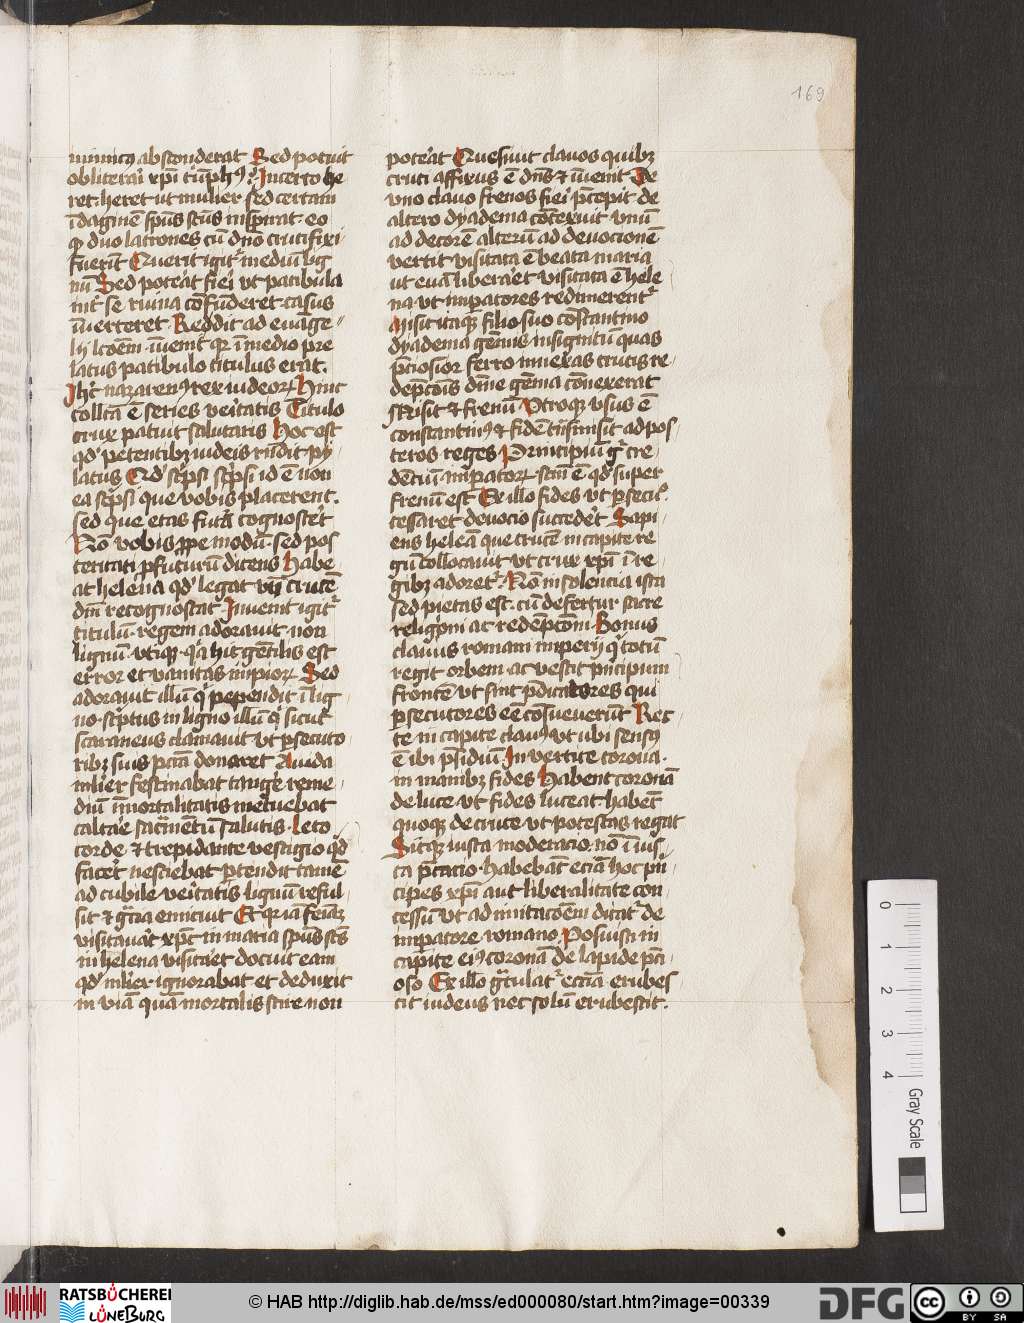 169
inimicus absconderat Sed potuit
obliterari xpi triumph9 Incerto he
ret. heret ut mulier sed certam
idagine spus sctus inspirat. eo
qd duo latrones cu dno crucifixi
fuerut Querit igitr mediu lig
nu Sed poterat fieri vt patibula
int se ruina confuderet. casus
iuerteret Reddit ad evage
lij lcoem. iuenit qr i medio pre
latus patibulo titulus erat.
Ihc nazaren9 rex iudeor Hinc
collcta e series veritatis Titulo
crux patuit salutaris Hoc est
qd petentibz iudeis rndit py
latus Qd scpsi scpsi id e non
ea scpsi que vobis placerent.
sed que etas futura cognosceret
No vobis ppe modu. sed pos
teritati pfuturu dicens Habe
at helena qd legat vn cruce
dni recognoscat Invenit igitr
titulu. regem adoravit. non
lignu. vtiqz. qa hic gentilis est
error et vanitas impior Sed
adoravit illu q pependit i lig
no. scptus in ligno illu q sicut
scaraneus clamavit vt psecuto
ribz suis pcta donaret Avida
mlier festinabat tangere reme
diu imortalitatis metuebat
calcare sacramentu salutis. Leto
corde & trepidante vestigio qd
faceret nesciebat ptendit tame
ad cubile veritatis lignu reful
sit & gra emicuit Et qr ia femia
visitavat xpc in maria spus scts
in helena visitaret docuit eam
qd mlier ignorabat et deduxit
in via qua mortalis scire non
poterat Quesivit clavos quibz
cruci affixus e dns & iuenit De
vno clavo frenos fieri pcepit de
altero dyadema contexuit vnu
ad decore alteru ad devocione
vertit visitata e beata maria
ut eva liberaret visitata e hele
na vt impatores redimerentr
Misit itaqz filio suo constantino
dyadema gemis insignitu quas
pciosior ferro innexas crucis re
depcois divine gema conexerat
Misit & frenu Vtroqz vsus e
constantin9 & fide transmisit ad pos
teros reges Principiu gr cre
denciu impator scm e qd super
frenu est Ex illo fides vt psecuc
cessaret devocio succederet Sapi
ens helena que cruce in capite re
gu collocavit vt crux xpi i re
gibz adoretr. Non insolencia ista
sed pietas est. cu defertur sacre
religioni ac redempcioni Bonus
clavus romani imperij q totu
regit orbem. ac vestit pncipum
fronte vt sint pdicatores qui
psecutores ee cosueverut Rec
te in capite clav9 vt ubi sens9
e ibi psidiu In vertice corona.
in manibz fides Habent corona
de luce vt fides luceat. habet
quoqz de cruce vt potestas regat
Sitqz iusta moderacio. no i ius
ta pcacio. habebat ecia hoc pn
cipes xpi aut liberalitate con
cessu vt ad imitacoem dicatr de
impatore romano Posuisti in
capite ei9 corona de lapide pci
oso Ex illo gratulatr eccia erubes
cit iudeus nec solu erubescit.
0
1
2
3
4
Gray Scale
RATSBÜCHEREI
LÜNEBURG
© HAB http://diglib.hab.de/mss/ed000080/start.htm?image=00339
DFG
cc BY SA